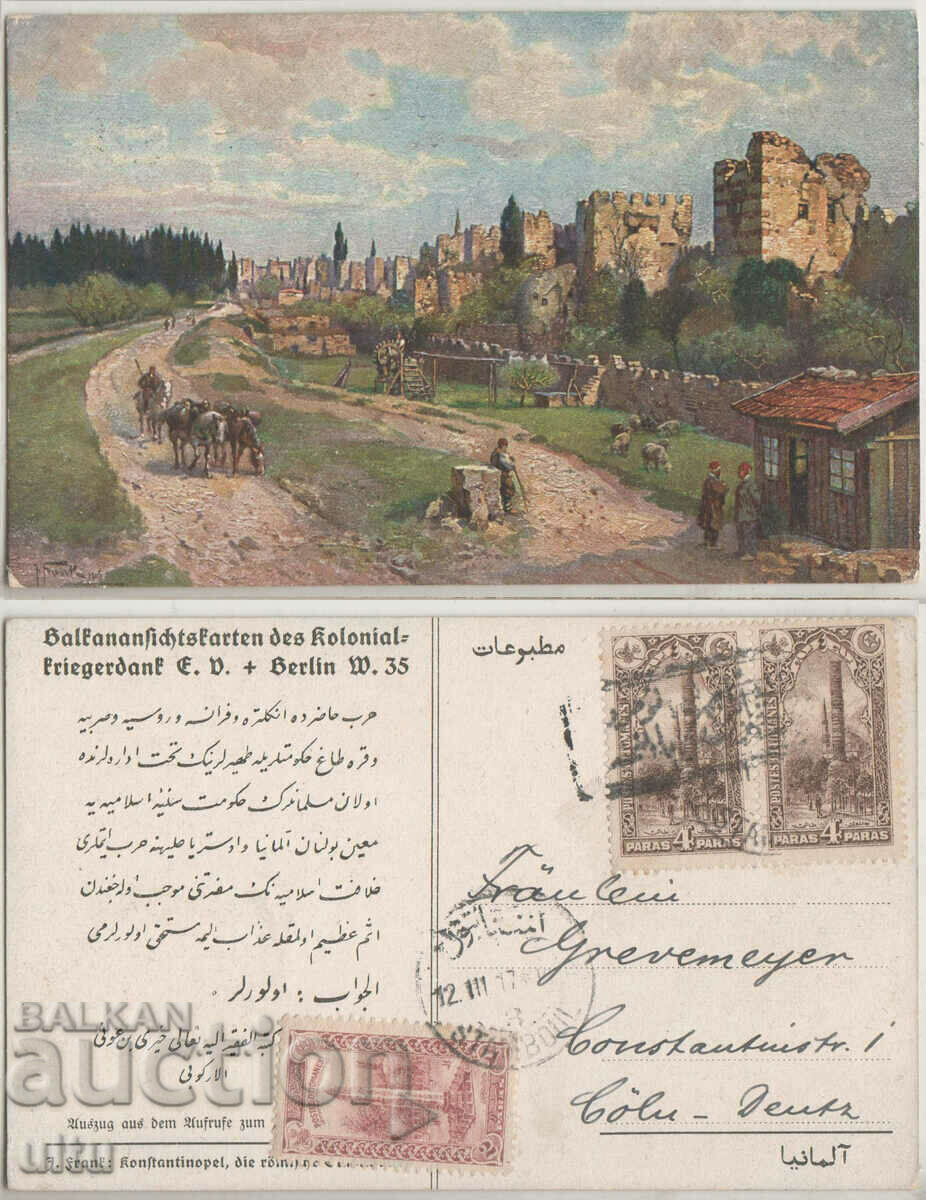 Balkanansichtskarten des Kolonial-
kriegerdank E. V. + Berlin W. 35
حرب حاضرده انكلتره وفرانسه و روسيه و صربيه
وقره طاغ حكومتلريله ظهيرلرينك تحت اداره لرنده
اولان مسلمانلرك حكومت سنيه اسلاميه يه
معين بولنان آلمانيا و اوستريا عليهنه حرب ايتملرى
خلافت اسلاميه نك مضرتنى موجب اوله جغندن
اثم عظيم اولمقله عذاب اليمه مستحق اولورلرمى
الجواب : اولورلر
كتبه الفقير اليه تعالى خيرى بن عونى
الاركوبى
Auszug aus dem Aufrufe zum
J. Frank: Konstantinopel, die
مطبوعات
POSTES OTTOMANES
PARAS 4 PARAS
POSTES OTTOMANES
PARAS 4 PARAS
Fräulein
Grevemeyer
Constantinstr. 1
Cöln - Deutz
آلمانيا
استانبول
12.III.17
STAMBOUL
BALKAN
auction
ultu